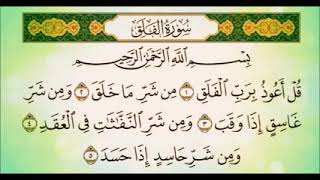 سُورَةُ الْفَلَقِ
بِسْمِ اللَّهِ الرَّحْمَٰنِ الرَّحِيمِ
قُلْ أَعُوذُ بِرَبِّ الْفَلَقِ ١ مِن شَرِّ مَا خَلَقَ ٢ وَمِن شَرِّ
غَاسِقٍ إِذَا وَقَبَ ٣ وَمِن شَرِّ النَّفَّٰثَٰتِ فِي الْعُقَدِ ٤
وَمِن شَرِّ حَاسِدٍ إِذَا حَسَدَ ٥